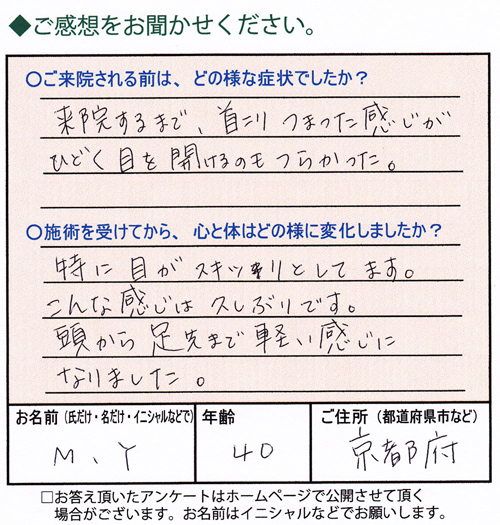 ◆ご感想をお聞かせください。
○ご来院される前は、どの様な症状でしたか？
来院するまで、首こり つまった感じが
ひどく目を開けるのもつらかった。
○施術を受けてから、心と体はどの様に変化しましたか？
特に目がスキッリとしてます。
こんな感じは久しぶりです。
頭から足先まで軽い感じに
なりました。
お名前（氏だけ・名だけ・イニシャルなどで） 年齢 ご住所（都道府県市など）
M、Y 40 京都府
□お答え頂いたアンケートはホームページで公開させて頂く
場合がございます。お名前はイニシャルなどでお願いします。